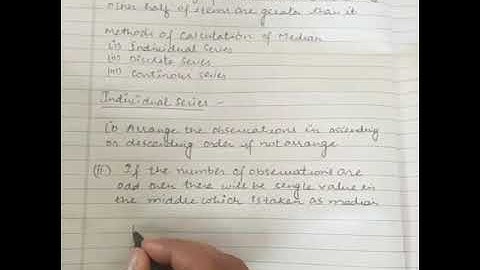 other half of items are greater than it
Methods of Calculation of Median
(i) Individual Series
(ii) Discrete Series
(iii) Continous Series
Individual Series :-
(i) Arrange the observations in ascending
or descending order if not arrange
(ii) If the number of observations are
odd then there will be single value in
the middle which is taken as median